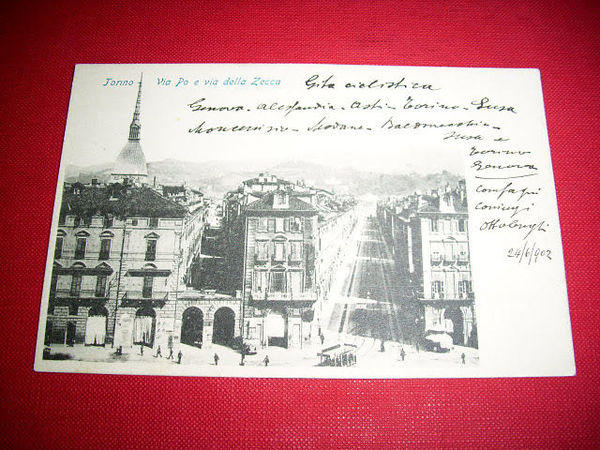 Torino - Via Po e via della Zecca
Gita ciclistica
Genova - Alessandria - Asti - Torino - Susa
Moncenisio - Modane - Bardonecchia -
Susa e
Torino
Genova
compagni
coniugi
Ottolenghi
24/6/902